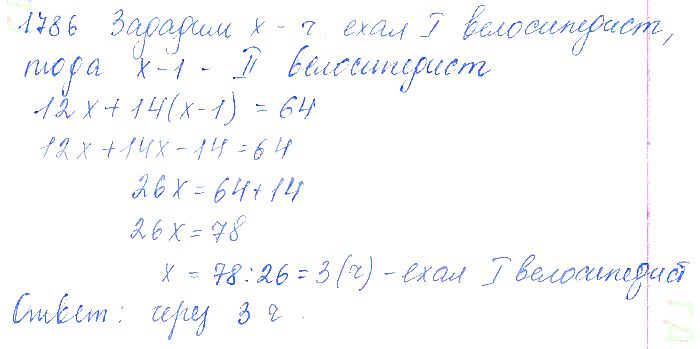 1786 Зададим x - ч. ехал I велосипедист,
тогда x-1 - II велосипедист
12x+14(x-1) = 64
12x+14x-14=64
26x=64+14
26x=78
x = 78:26=3(ч) - ехал I велосипедист
Ответ: через 3 ч.